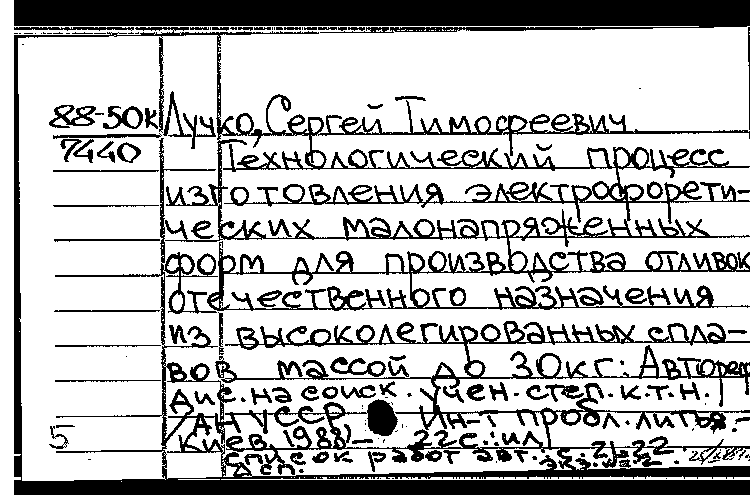 88-50К Лучко, Сергей Тимофеевич.
7440 Технологический процесс
изготовления электрофорети-
ческих малонапряженных
форм для производства отливок
отечественного назначения
из высоколегированных спла-
вов массой до 30кг: Автореф
дис. на соиск. учен. степ. к.т.н. /
/АН УССР Ин-т пробл. литья.-
5 Киев, 1988.- 22с.: ил/
список работ авт.: с. 21-22
Дсп. экз. № 2.